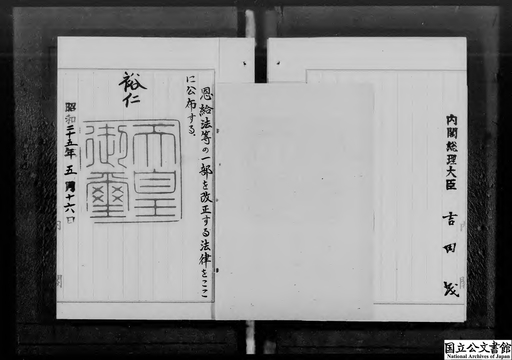 恩給法等の一部を改正する法律をここ
に公布する。
裕仁
天皇
御璽
昭和二十五年五月十六日
内閣総理大臣 吉田茂
国立公文書館
National Archives of Japan